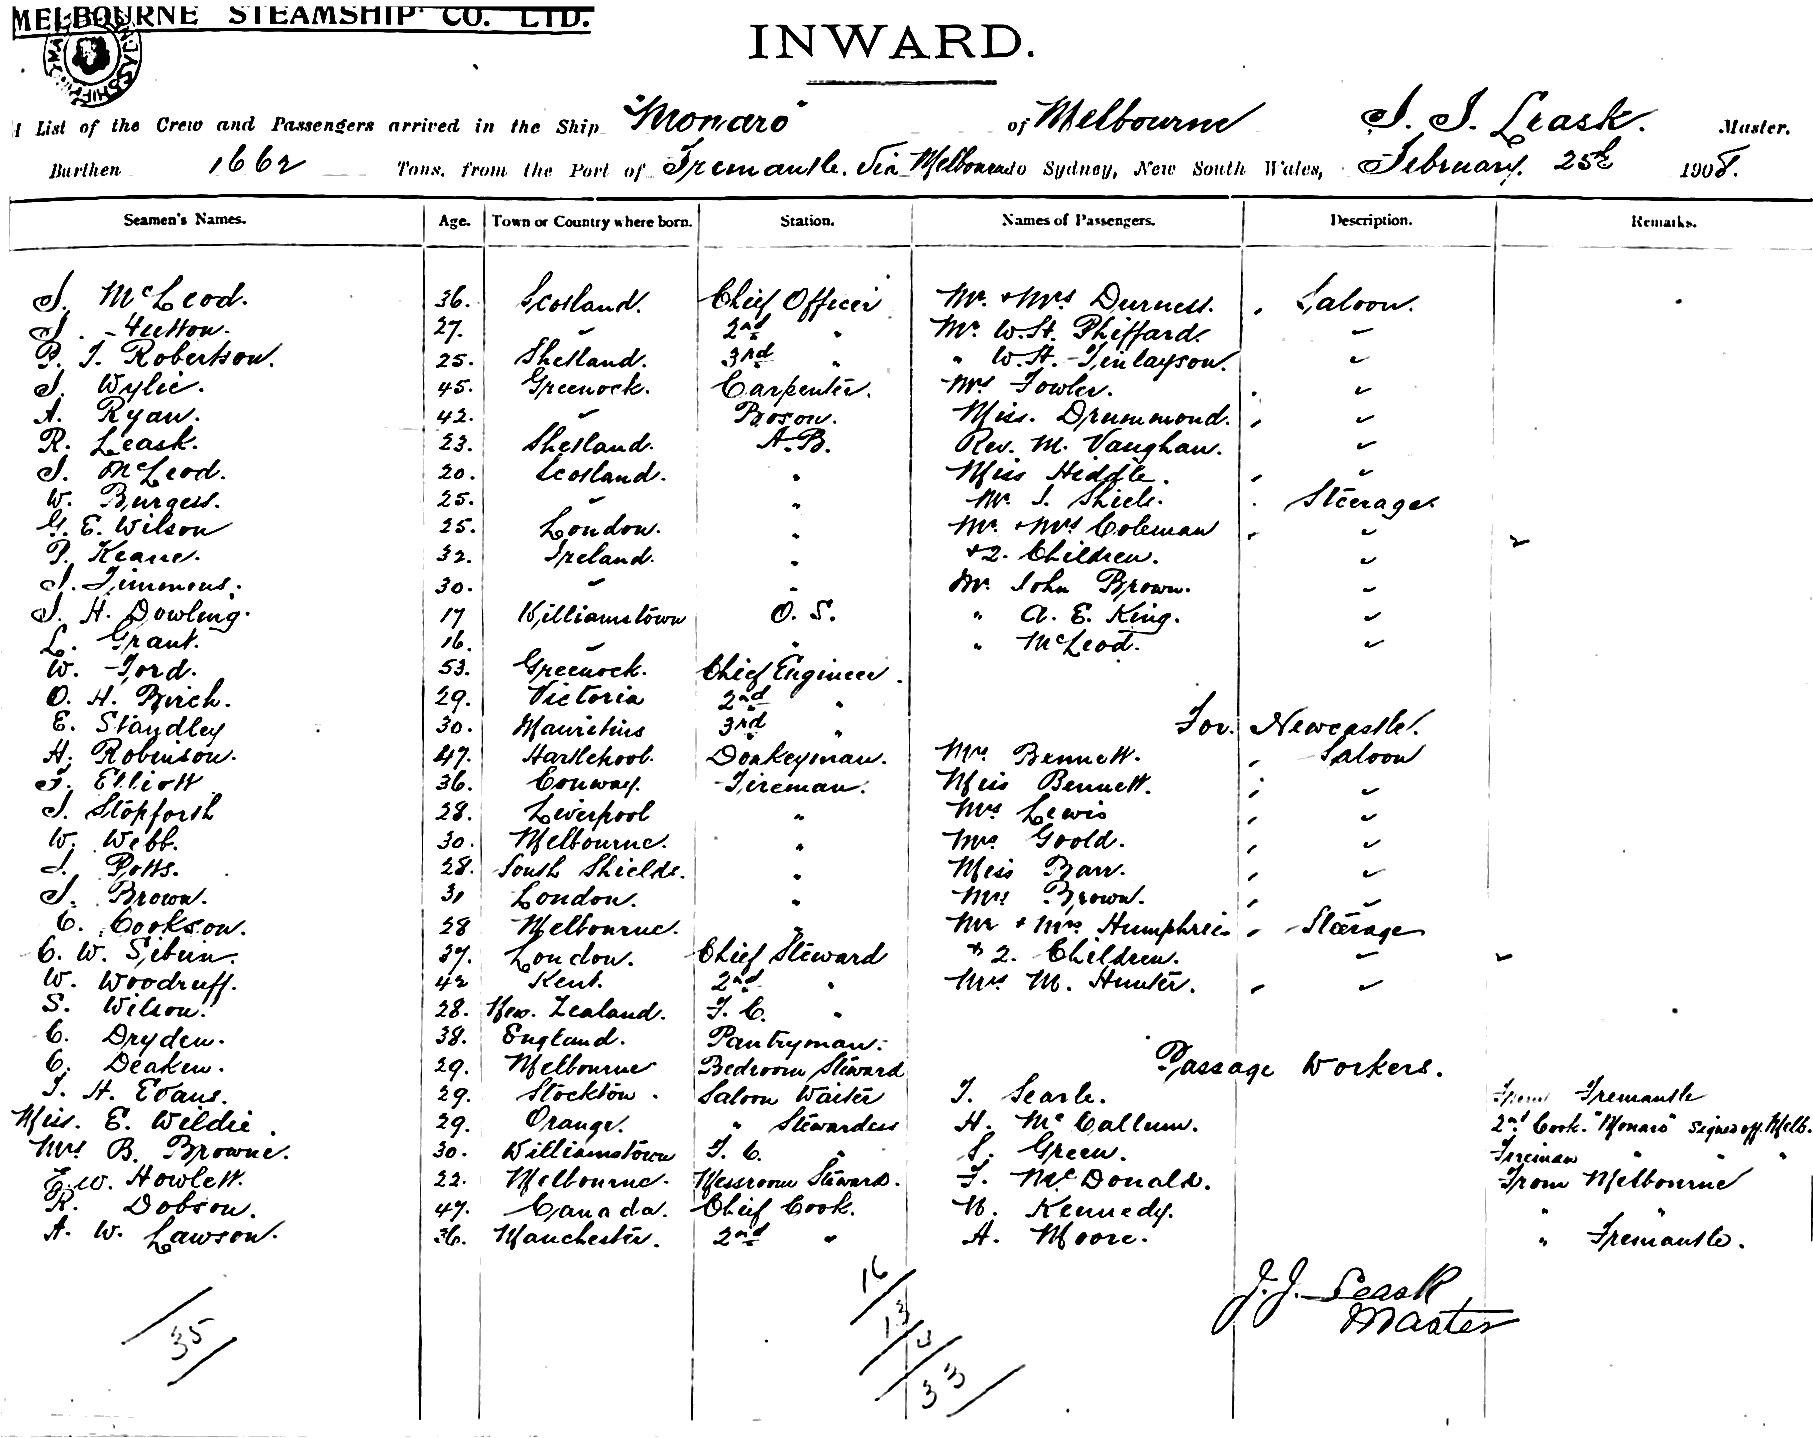 MELBOURNE STEAMSHIP CO. LTD.
INWARD.
A List of the Crew and Passengers arrived in the Ship "Monaro" of Melbourne J. J. Leask. Master.
Burthen 1662 Tons, from the Port of Fremantle. Via Melbourne to Sydney, New South Wales, February. 25th 1908.
Seamen's Names. Age. Town or Country where born. Station. Names of Passengers. Description. Remarks.
J. McLeod. 36. Scotland. Chief Officer Mr. & Mrs Durness. Saloon.
J. Hutton. 27. " 2nd " Mr. W. St. Phiffard. "
P. J. Robertson. 25. Shetland. 3rd " " W. H. Finlayson. "
J. Wylie. 45. Greenock. Carpenter. Mrs Fowler. "
A. Ryan. 42. " Boson. Miss. Drummond. "
R. Leask. 23. Shetland. A.B. Rev. M. Vaughan. "
J. McLeod. 20. Scotland. " Miss Hiddle. "
W. Burgess. 25. " " Mr. J. Shiels. Steerage.
G. E. Wilson 25. London. " Mr. & Mrs Coleman "
P. Keane. 32. Ireland. " & 2. Children. "
J. Timmons. 30. " " Mr. John Brown. "
J. H. Dowling. 17 Williamstown O. S. " A. E. King. "
L. Grant. 16. " " " McLeod. "
W. Ford. 53. Greenock. Chief Engineer.
O. H. Birch. 29. Victoria 2nd "
E. Standley 30. Mauritius 3rd " For Newcastle.
H. Robinson. 47. Hartlepool. Donkeyman. Mrs Bennett. Saloon
F. Elliott 36. Conway. Fireman. Miss Bennett. "
J. Stopforth 28. Liverpool " Mrs Lewis "
W. Webb. 30. Melbourne. " Mrs Goold. "
J. Potts. 28. South Shields. " Miss Barr. "
J. Brown. 31 London. " Mrs Brown. "
C. Cookson. 28 Melbourne. " Mr & Mrs Humphries Steerage
C. W. Sibun. 37. London. Chief Steward & 2. Children. "
W. Woodruff. 42 Kent. 2nd " Mrs M. Hunter. "
S. Wilson. 28. New. Zealand. F. C. "
C. Dryden. 38. England. Pantryman.
C. Deaken. 29. Melbourne Bedroom Steward Passage Workers.
J. H. Evans. 29. Stockton. Saloon Waiter J. Searle. From Fremantle
Miss. E. Wildie. 29. Orange. " Stewardess H. McCallum. 2nd Cook. "Monaro" signed off. Melb.
Mrs B. Browne. 30. Williamstown F. C. " S. Green. Fireman " "
E. W. Howlett. 22. Melbourne. Messroom Steward. F. McDonald. From Melbourne
R. Dobson. 47. Canada. Chief Cook. N. Kennedy. " "
A. W. Lawson. 36. Manchester. 2nd " A. Moore. " Fremantle.
J. J. Leask
Master
35
16
13
33